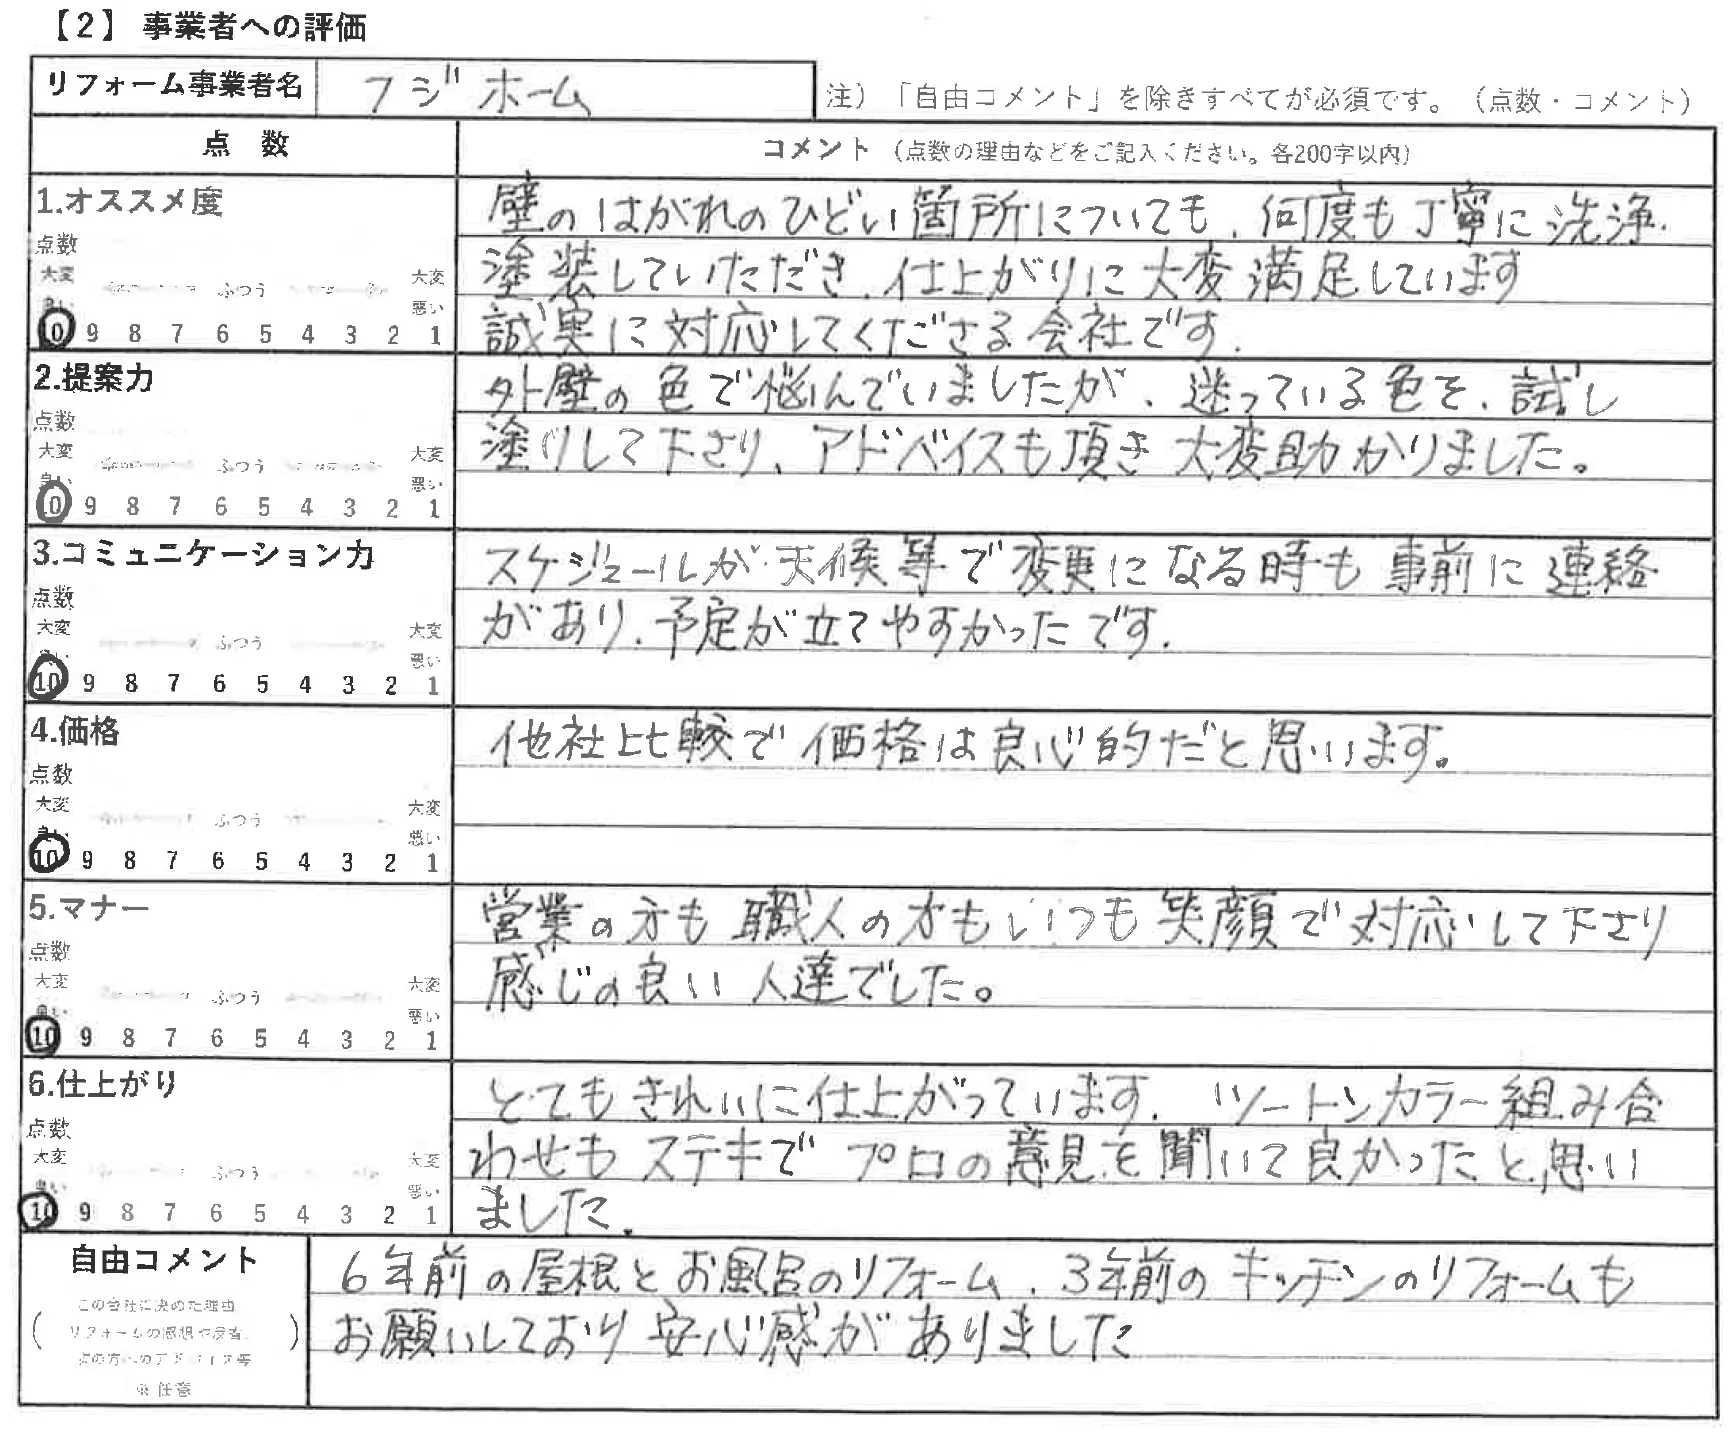 【2】 事業者への評価
リフォーム事業者名 フジホーム
注）「自由コメント」を除きすべてが必須です。（点数・コメント）
点 数
コメント （点数の理由などをご記入ください。各200字以内）
1.オススメ度
点数
大変 良い ふつう 大変 悪い
10 9 8 7 6 5 4 3 2 1
壁のはがれのひどい箇所についても、何度も丁寧に洗浄.
塗装していただき、仕上がりに大変満足しています
誠実に対応してくださる会社です.
2.提案力
点数
大変 良い ふつう 大変 悪い
10 9 8 7 6 5 4 3 2 1
外壁の色で悩んでいましたが、迷っている色を、試し
塗りして下さり、アドバイスも頂き大変助かりました。
3.コミュニケーション力
点数
大変 良い ふつう 大変 悪い
10 9 8 7 6 5 4 3 2 1
スケジュールが天候等で変更になる時も事前に連絡
があり、予定が立てやすかったです.
4.価格
点数
大変 良い ふつう 大変 悪い
10 9 8 7 6 5 4 3 2 1
他社比較で価格は良心的だと思います。
5.マナー
点数
大変 良い ふつう 大変 悪い
10 9 8 7 6 5 4 3 2 1
営業の方も職人の方もいつも笑顔で対応して下さり
感じの良い人達でした。
6.仕上がり
点数
大変 良い ふつう 大変 悪い
10 9 8 7 6 5 4 3 2 1
とてもきれいに仕上がっています. ツートンカラー組み合
わせもステキでプロの意見を聞いて良かったと思い
ました.
自由コメント
この会社に決めた理由
リフォームの感想や反省、
次の方へのアドバイス等
※任意
6年前の屋根とお風呂のリフォーム、3年前のキッチンのリフォームも
お願いしており安心感がありました